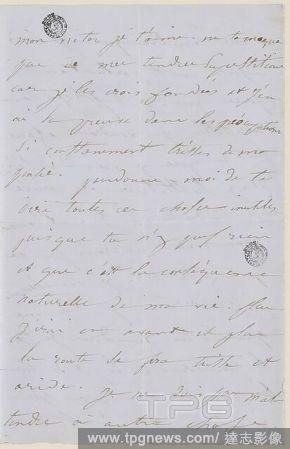 mon victor je t'aime ne te moque
pas de mes tendres superstitions
car je les crois fondées et j'en
ai la preuve dans les préoccupations
si constamment tristes de ma
pensée. pardonne-moi de te
dire toutes ces choses inutiles
puisque tu n'y peux rien
et que c'est la conséquence
naturelle de ma vie. plus
j'irai en avant et plus
la route sera triste et
aride. je ne dois pas m'at
tendre à autre chose
TPG
www.tpgnews.com / 達志影像